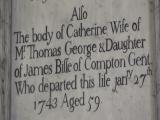 Also
The body of Catherine Wife of
Mr Thomas George & Daughter
of James Bisse of Compton Gent.
Who departed this life janry 27th
1743 Aged 59.